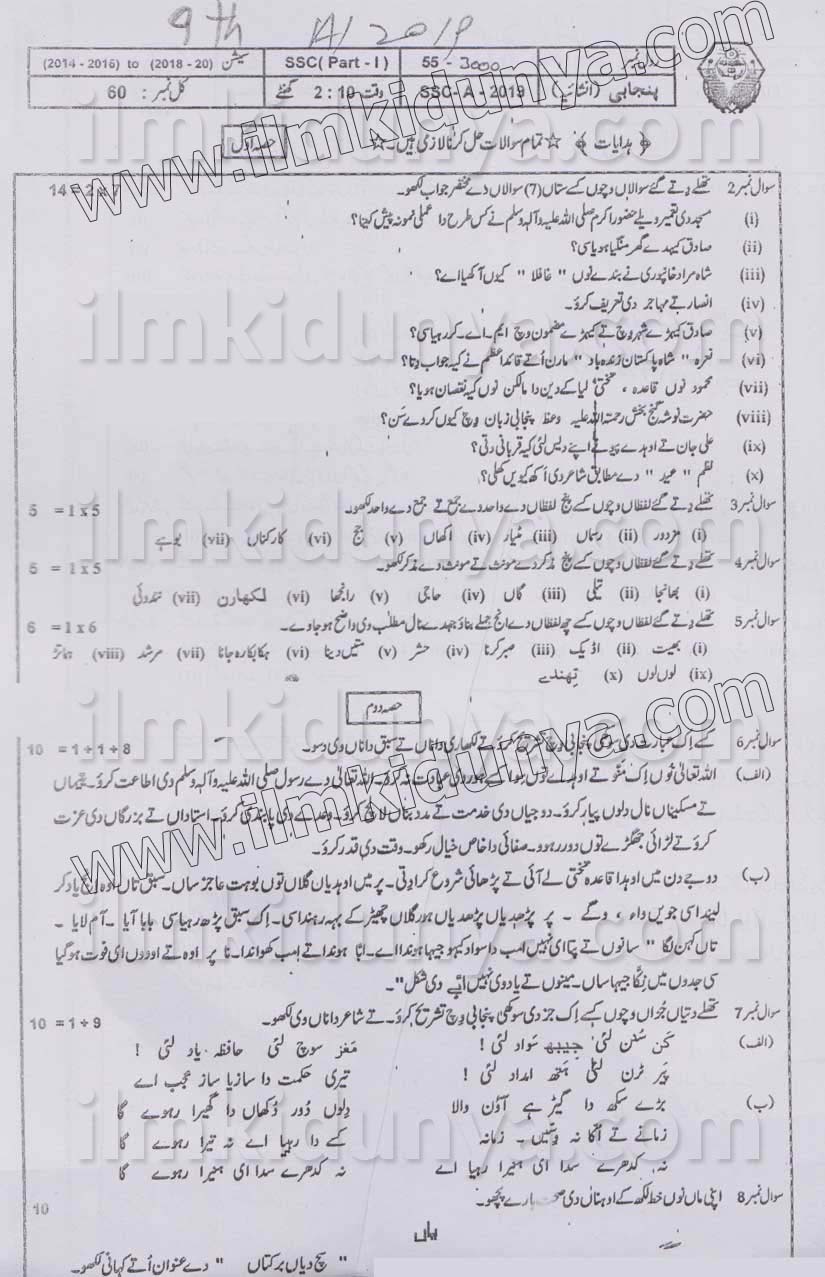 9th A1 2019
رول نمبر 55 - 3000 SSC( Part - I ) سیشن (2014 - 2016) to (2018 - 20)
پنجابی (انشائیہ) SSC-A-2019 وقت 2 : 10 گھنٹے کل نمبر : 60
﴿ ہدایات ﴾ ☆ تمام سوالات حل کرنا لازمی ہیں۔ ☆ حصہ اوّل
سوال نمبر 2 تھلے دِتے گئے سوالاں وچوں کسے ستاں (7) سوالاں دے مختصر جواب لکھو۔ 14 = 2 x 7
(i) مسجد دی تعمیر ویلے حضور اکرم صلی اللہ علیہ وآلہ وسلم نے کس طرح دا عملی نمونہ پیش کیتا؟
(ii) صادق کیہدے گھر منگیا ہویا سی؟
(iii) شاہ مراد خانپوری نے بندے نوں " غافلا " کیوں آکھیا اے؟
(iv) انصار تے مہاجر دی تعریف کرو۔
(v) صادق کیہڑے شہر وِچ تے کیہڑے مضمون وچ ایم۔اے۔ کر رہیا سی؟
(vi) نعرہ " شاہ پاکستان زندہ باد " مارن اُتے قائداعظم نے کیہ جواب دِتا؟
(vii) محمود نوں قاعدہ ، تختی لیا کے دین دا مالکن نوں کیہ نقصان ہویا؟
(viii) حضرت نوشہ گنج بخش رحمتہ اللہ علیہ وعظ پنجابی زبان وِچ کیوں کردے سَن؟
(ix) علی جان تے اوہدے پیو نے اپنے دیس لئی کیہ قربانی دتی؟
(x) نظم " عید " دے مطابق شاعر دی اَکھ کیویں کھلی؟
سوال نمبر 3 تھلے دِتے گئے لفظاں وچوں کسے پنج لفظاں دے واحد دے جمع تے جمع دے واحد لکھو۔ 5 = 1 x 5
(i) مزدور (ii) رسماں (iii) مٹیار (iv) اکھاں (v) جج (vi) کارکناں (vii) بوہے
سوال نمبر 4 تھلے دِتے گئے لفظاں وچوں کسے پنج مذکر دے مونث تے مونث دے مذکر لکھو۔ 5 = 1 x 5
(i) بھانجا (ii) تیلی (iii) گاں (iv) حاجی (v) رانجھا (vi) لکھارن (vii) نندوئی
سوال نمبر 5 تھلے دِتے گئے لفظاں وچوں کسے چھ لفظاں دے انج جملے بناؤ جہدے نال مطلب وی واضح ہو جاوے۔ 6 = 1 x 6
(i) بھیت (ii) اڈیک (iii) صبر کرنا (iv) حشر (v) متیں دینا (vi) ہکا بکا رہ جانا (vii) مرشد (viii)
(ix) لوں لوں (x) تِھندے
حصہ دوم
سوال نمبر 6 کسے اِک عبارت دی سوکھی پنجابی وِچ تشریح کرو تے لکھاری دا ناں تے سبق دا ناں وی دسو۔ 10 = 1 + 1 + 8
(الف) اللہ تعالیٰ نُوں اِک منّو تے اوہدے توں سوا کسے ہور دی عبادت نہ کرو۔ اللہ تعالیٰ دے رسول صلی اللہ علیہ وآلہ وسلم دی اطاعت کرو۔ یتیماں
تے مسکیناں نال دِلوں پیار کرو۔ دوجیاں دی خدمت تے مدد بناں لالچ کرو۔ وعدے دی پابندی کرو۔ استاداں تے بزرگاں دی عزت
کرو تے لڑائی جھگڑے توں دور رہوو۔ صفائی دا خاص خیال رکھو۔ وقت دی قدر کرو۔
(ب) دوجے دن میں اوہدا قاعدہ تختی لے آئی تے پڑھائی شروع کرا دِتی۔ پر میں اوہدیاں گلاں توں بوہت عاجز ساں۔ سبق تاں اوہ اِنج یاد کر
لیندا سی جویں واء ، وگے - پر پڑھدیاں پڑھدیاں ہور گلاں چھیڑ کے بہہ رہندا سی۔ اِک سبق پڑھ رہیا سی بابا آیا - آم لایا -
تاں کہن لگا " سانوں تے پتا ای نہیں امب دا سواد کیہو جیہا ہوندا اے۔ ابّا ہوندا تے اِمب کھواندا۔ نا پر اوہ تے اودوں ای فوت ہو گیا
سی جدوں میں نِگّا جیہا ساں۔ مینوں تے یاد وی نہیں ابّے دی شکل "۔
سوال نمبر 7 تھلے دتیاں جُزاں وچوں کسے اِک جز دی سوکھی پنجابی وِچ تشریح کرو۔ تے شاعر دا ناں وی لکھو۔ 10 = 1 + 9
(الف) کَن سُنن لئی جیبھ سَواد لئی ! مَغز سوچ لئی حافظہ یاد لئی !
پَیر ٹرن لئی ہَتھ امداد لئی ! تیری حکمت دا سازیا ساز عجب اے
(ب) بڑے سکھ دا گیڑ ہے آؤن والا دِلوں دُور دُکھاں دا گھیرا رہوے گا
زمانے تے اَتّکا نہ وَتّیں - زمانہ کسے دا رہیا اے نہ تیرا رہوے گا
نہ کدھرے سدا ای ہنیرا رہیا اے نہ کدھرے سدا ای ہنیرا رہوے گا
سوال نمبر 8 اپنی ماں نوں خط لکھ کے اوہناں دی صحت بارے پُچھو۔ 10
یاں
" سچ دیاں برکتاں " دے عنوان اُتے کہانی لکھو۔
www.ilmkidunya.com
ilmkidunya.com